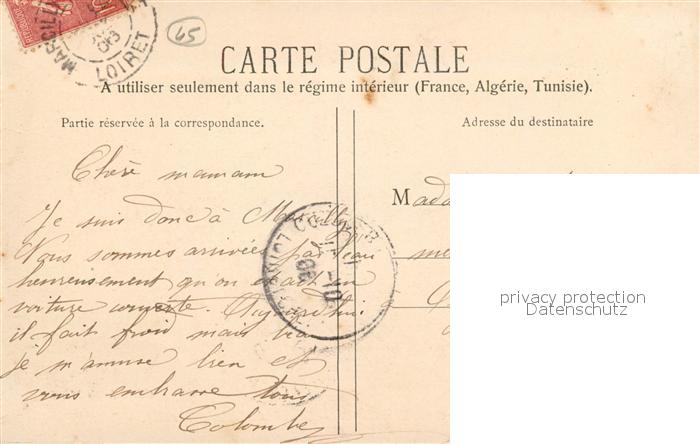 MARCILLY
LOIRET
65
CARTE POSTALE
A utiliser seulement dans le régime intérieur (France, Algérie, Tunisie).
Partie réservée à la correspondance.
Adresse du destinataire
Chère maman
Je suis donc à Marcilly
Nous sommes arrivées par eau
heureusement qu'on était en
voiture couverte. Aujourd'hui
il fait froid mais beau
je m'amuse bien et
vous embrasse tous
Colombe
Mada
privacy protection
Datenschutz